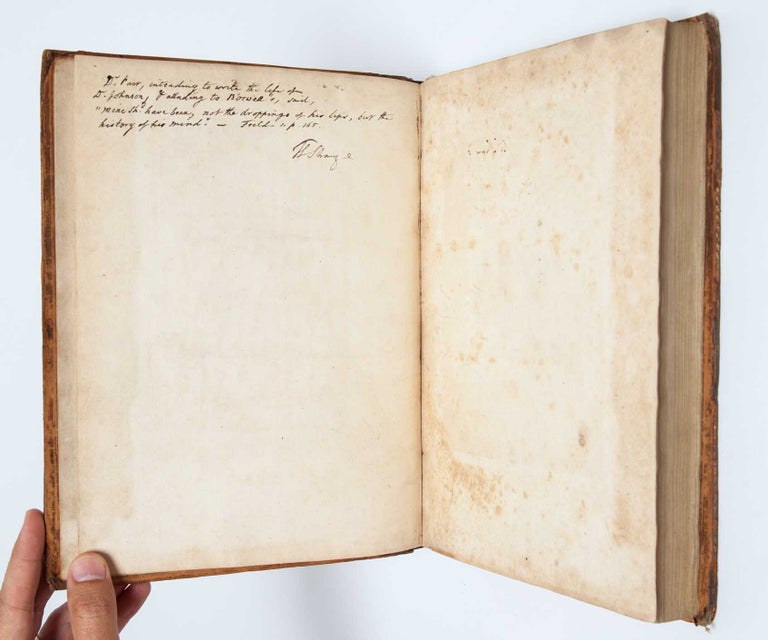 Dr. Parr, intending to write the life of
Dr. Johnson, & alluding to Boswell's, said,
"mine shd. have been, not the droppings of his lips, but the
history of his mind." — Field - 1. p. 165.
T Strange